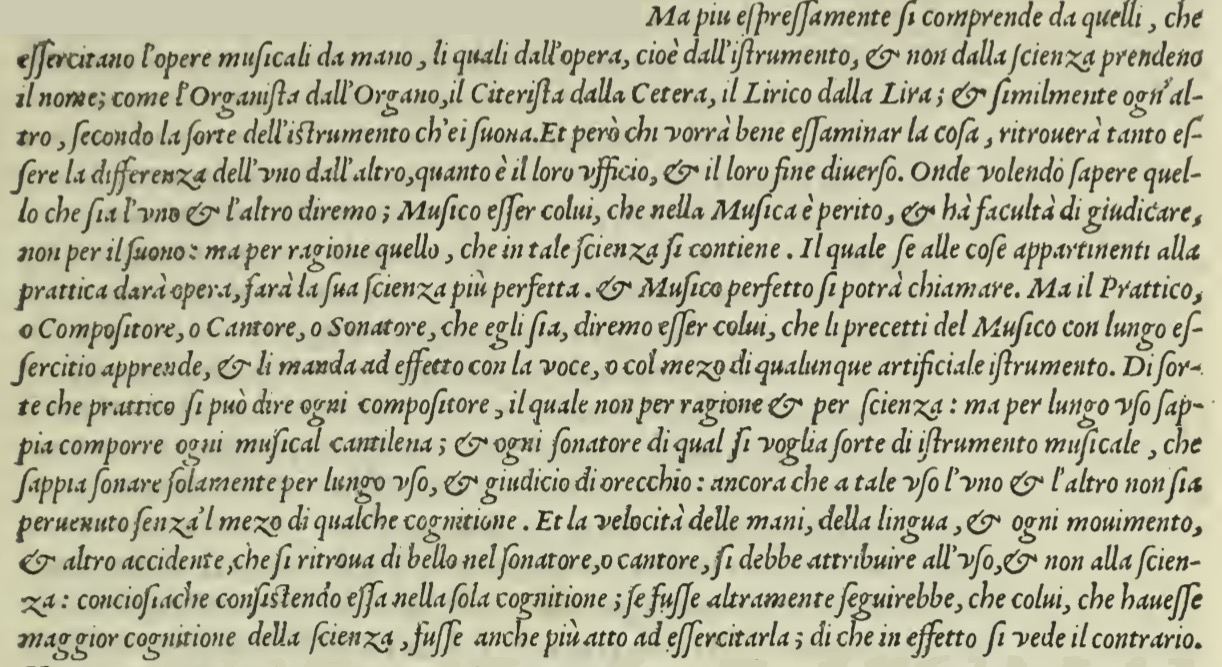 Ma piu eſpreſſamente ſi comprende da quelli, che
eſſercitano l'opere muſicali da mano, li quali dall'opera, cioè dall'iſtrumento, & non dalla ſcienza prendeno
il nome; come l'Organiſta dall'Organo, il Citeriſta dalla Cetera, il Lirico dalla Lira; & ſimilmente ogn'al-
tro, ſecondo la ſorte dell'iſtrumento ch'ei ſuona. Et però chi vorrà bene eſſaminar la coſa, ritrouerà tanto eſ-
ſere la differenza dell'vno dall'altro, quanto è il loro vfficio, & il loro fine diuerſo. Onde volendo ſapere quel-
lo che ſia l'vno & l'altro diremo; Muſico eſſer colui, che nella Muſica è perito, & hà facultà di giudicare,
non per il ſuono: ma per ragione quello, che in tale ſcienza ſi contiene. Il quale ſe alle coſe appartinenti alla
prattica darà opera, farà la ſua ſcienza più perfetta. & Muſico perfetto ſi potrà chiamare. Ma il Prattico,
o Compoſitore, o Cantore, o Sonatore, che egli ſia, diremo eſſer colui, che li precetti del Muſico con lungo eſ-
ſercitio apprende, & li manda ad effetto con la voce, o col mezo di qualunque artificiale iſtrumento. Di ſor-
te che prattico ſi può dire ogni compoſitore, il quale non per ragione & per ſcienza: ma per lungo vſo ſap-
pia comporre ogni muſical cantilena; & ogni ſonatore di qual ſi voglia ſorte di iſtrumento muſicale, che
ſappia ſonare ſolamente per lungo vſo, & giudicio di orecchio: ancora che a tale vſo l'vno & l'altro non ſia
peruenuto ſenza'l mezo di qualche cognitione. Et la velocità delle mani, della lingua, & ogni mouimento,
& altro accidente, che ſi ritroua di bello nel ſonatore, o cantore, ſi debbe attribuire all'vſo, & non alla ſcien-
za: concioſiache conſiſtendo eſſa nella ſola cognitione; ſe fuſſe altramente ſeguirebbe, che colui, che haueſſe
maggior cognitione della ſcienza, fuſſe anche più atto ad eſſercitarla; di che in effetto ſi vede il contrario.